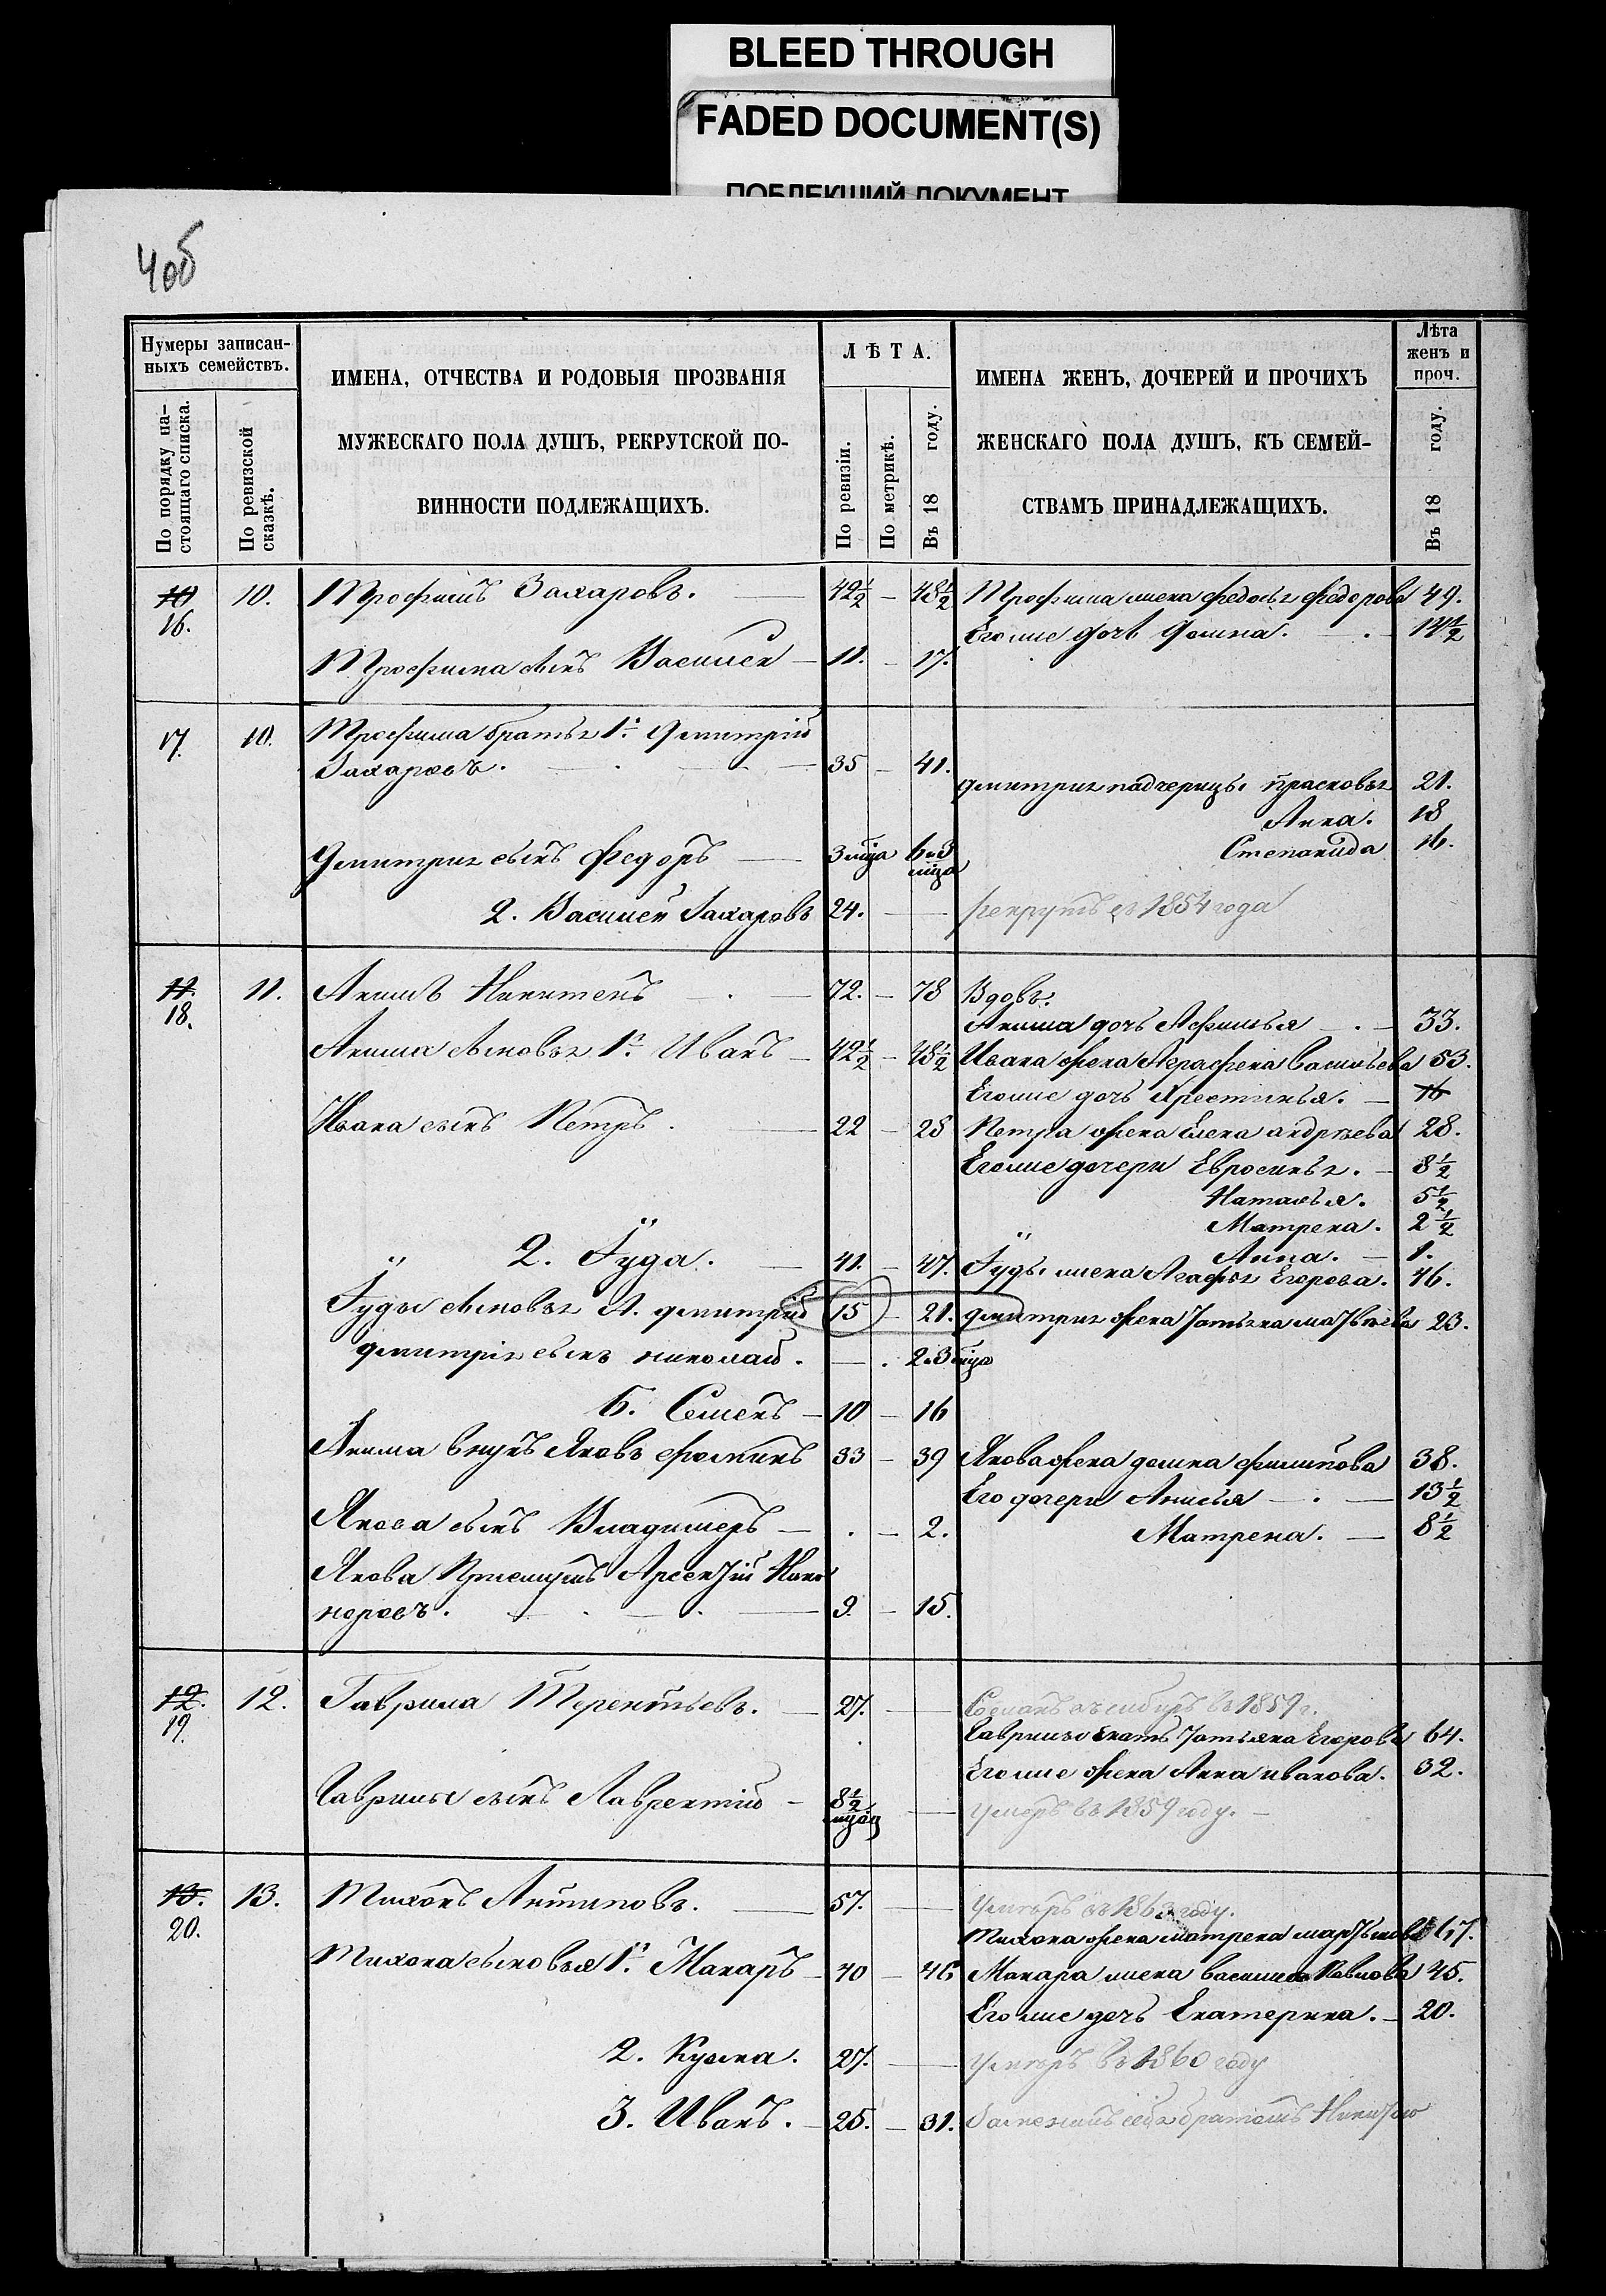 BLEED THROUGH
FADED DOCUMENT(S)
ПОБЛЕКШИЙ ДОКУМЕНТ
4об
Нумеры записан-
ныхъ семействъ.
По порядку на-
стоящаго списка.
По ревизской
сказкѣ.
ИМЕНА, ОТЧЕСТВА И РОДОВЫЯ ПРОЗВАНІЯ
МУЖЕСКАГО ПОЛА ДУШЪ, РЕКРУТСКОЙ ПО-
ВИННОСТИ ПОДЛЕЖАЩИХЪ.
ЛѢТА.
По ревизіи.
По метрикѣ.
Въ 18 году.
ИМЕНА ЖЕНЪ, ДОЧЕРЕЙ И ПРОЧИХЪ
ЖЕНСКАГО ПОЛА ДУШЪ, КЪ СЕМЕЙ-
СТВАМЪ ПРИНАДЛЕЖАЩИХЪ.
Лѣта
женъ и
проч.
Въ 18 году.
10 10. Трофимъ Захаровъ. 42½ — 48½ Трофима жена Федосья Федорова 49.
16. Его же дочь Домна. 14½
Трофима сынъ Василей — 11. — 17.
17. 10. Трофима братья 1й Дмитрій
Захаровъ. 35 — 41.
Дмитрия падчерицы Прасковья 21.
Анна. 18
Дмитрия сынъ Федоръ 3 мца 6 и 3 мца Степанида 16.
2. Василей Захаровъ 24. — рекрутъ съ 1854 года
11. 11. Акимъ Никитенъ 72. — 78 Вдовъ.
18. Акима дочь Афимья 33.
Акима сыновья 1й Иванъ — 42½ — 48½ Ивана жена Аграфена Васильева 53.
Его же дочь Христинья. — 16
Ивана сынъ Петръ. 22 — 28 Петра жена Елена Андреева 28.
Его же дочери Евросинья. — 8½
Наталья. 5½
Матрена. 2½
Анна. — 1.
2. Іуда. 41. — 47. Іуды жена Агафья Егорова. 46.
Іуды сыновья А. Дмитрій 15 — 21. Дмитрия жена Татьяна Матвеева 23.
Дмитрія сынъ Николай. — . 2. 3 мца
Б. Семенъ — 10 — 16
Акима внукъ Яковъ Фоминъ 33 — 39 Якова жена Домна Филипова 38.
Его дочери Анисья — . — 13½
Якова сынъ Владимеръ — . — 2. Матрена. — 8½
Якова Приемышъ Арсентій Ника
норовъ. 9. — 15.
12. 12. Гаврила Терентьевъ. — 27. — Сосланъ въ сибирь въ 1859 г.
19. Гаврилы мать Татьяна Егорова 64.
Его же жена Анна Иванова. 32.
Гаврилы сынъ Лаврентій — 8½ мца — умеръ въ 1859 году. —
13. 13. Тихонъ Антиповъ. 57. — умеръ въ 1863 году.
20. Тихона жена Матрена Мартынова 67.
Тихона сыновья 1й Макаръ — 40 — 46 Макара жена Василиса Павлова 45.
Его же дочь Екатерина. — 20.
2. Кузма. 27. — умеръ въ 1860 году
3. Иванъ. — 25. — 31. братомъ Никитою